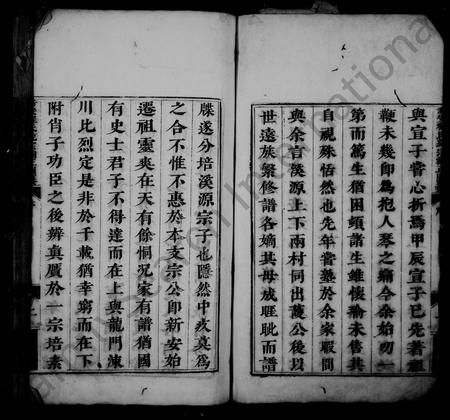 與宣子嘗心折焉甲辰宣子已先著
鞭未幾卽爲抱人琴之痛今余始叨一
第而篤生猶困頓諸生雖懷瑜未售其
自視殊恬然也先年嘗塾於余家暇間
與余言溪源上下兩村同出萬公後以
世遠族繁修譜各嫡其母成睚眦而譜
牒遂分培溪源宗子也隱然中疚莫爲
之合不惟不惠於本支宗公卽新安始
遷祖靈爽在天有餘恫况家有譜猶國
有史士君子不得達而在上與龍門涑
川比烈定是非於千載猶幸窮而在下
附肖子功臣之後辨眞贋於一宗培素
International